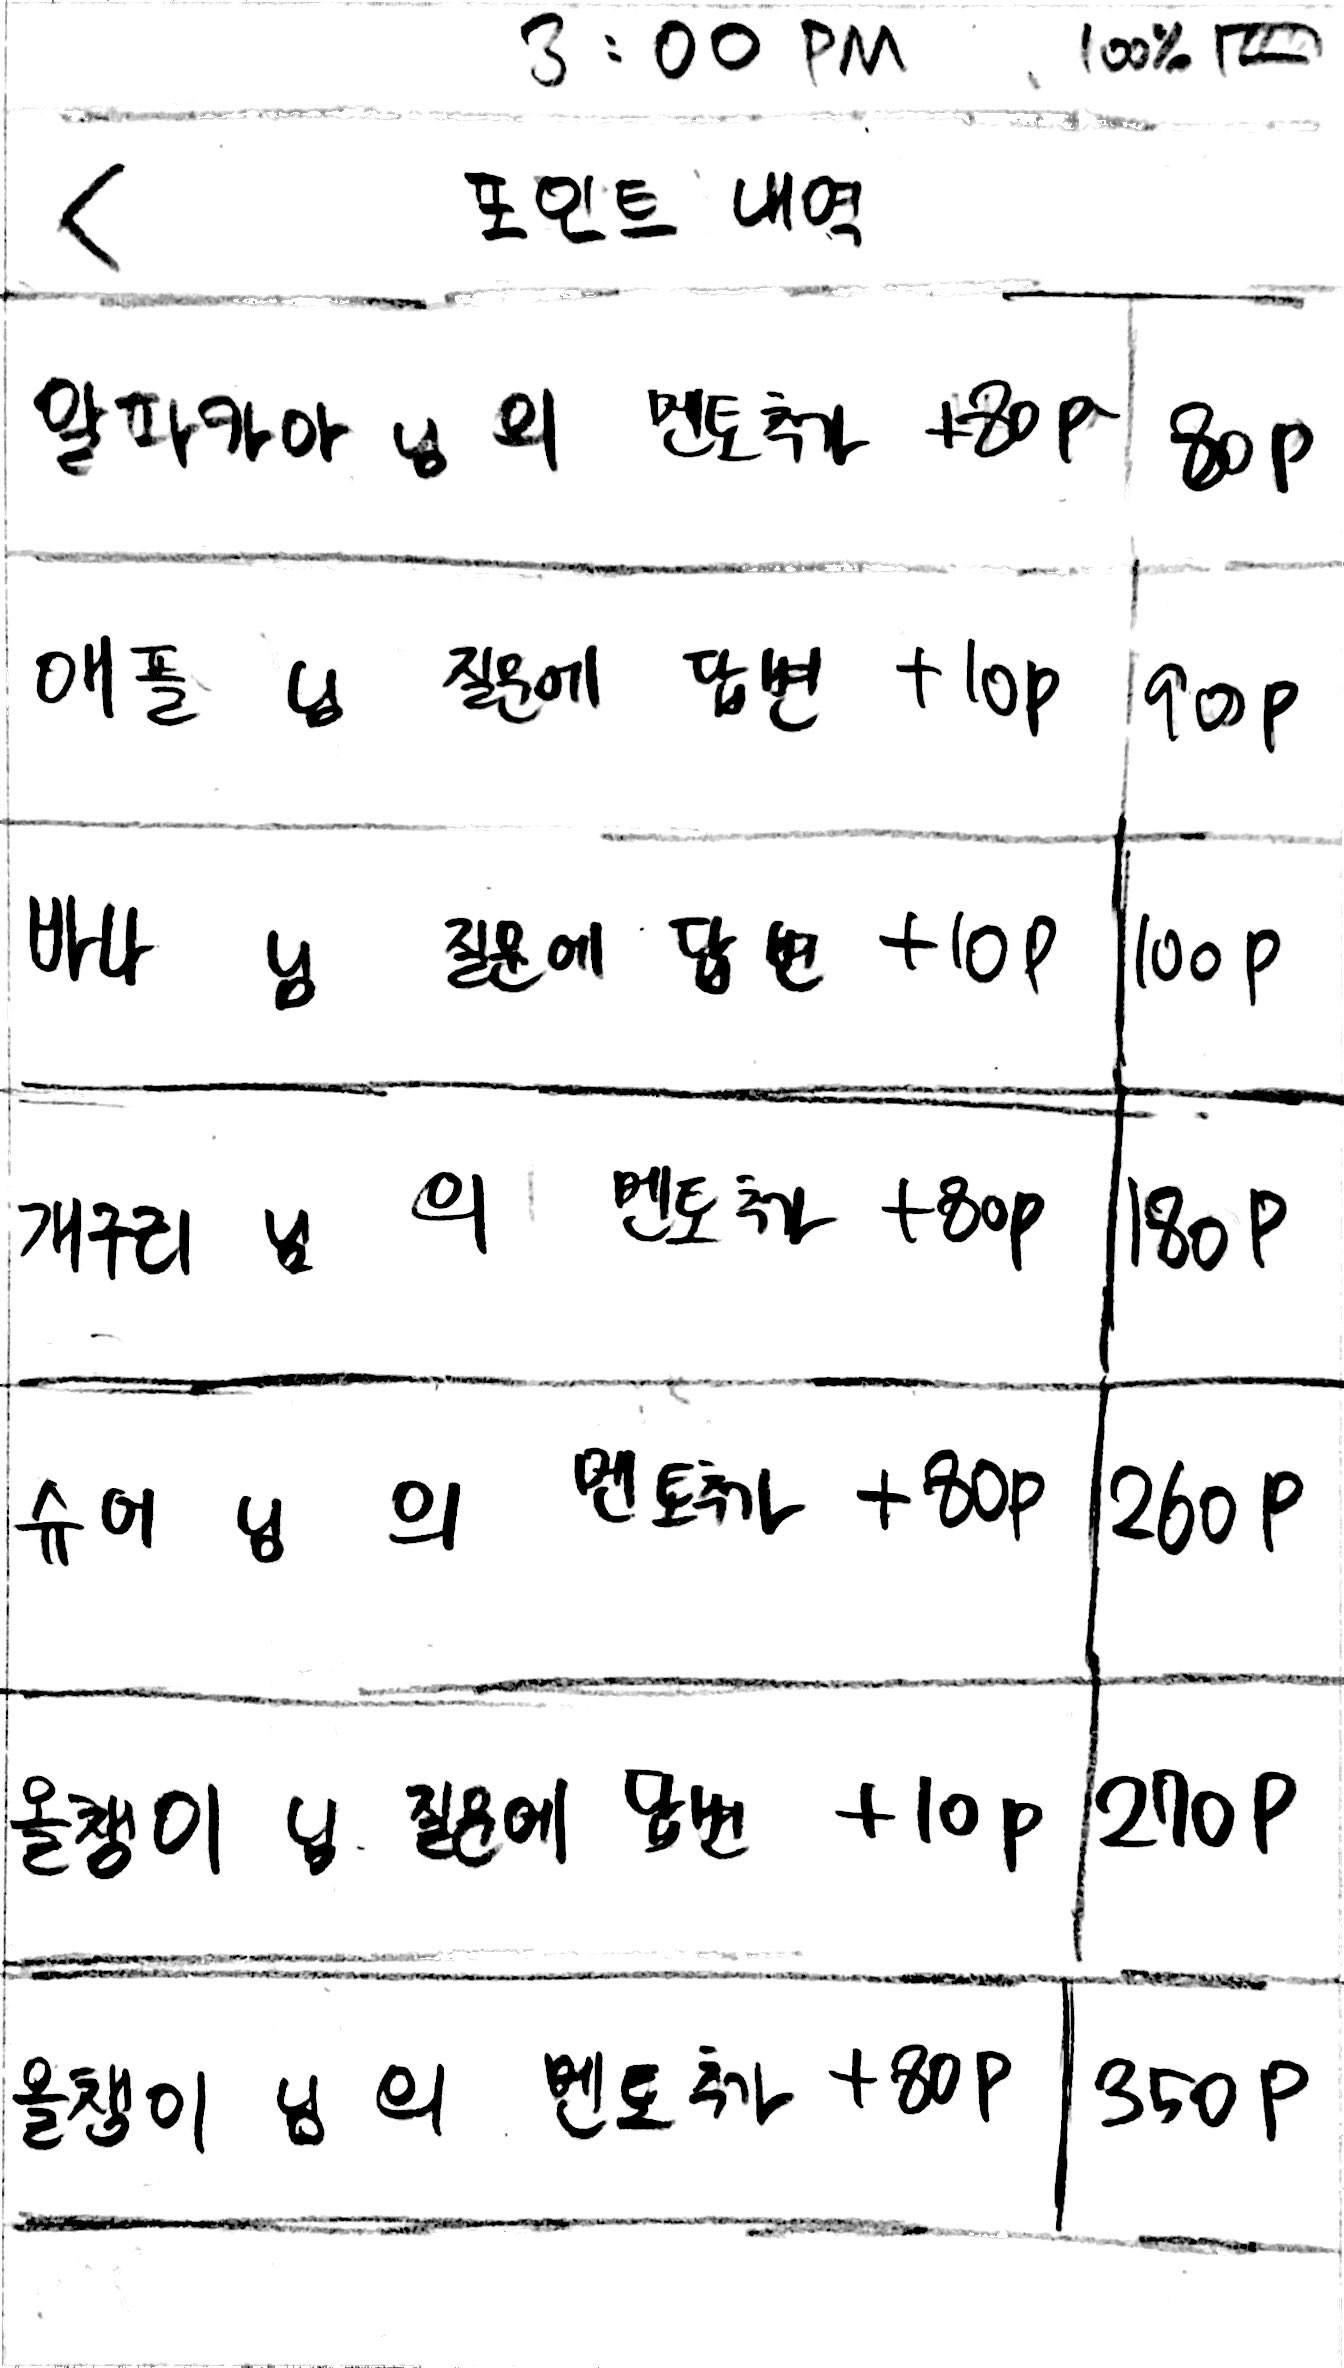 3:00 PM 100%
< 포인트 내역
알파카아 님 의 멘토추가 +80p 80p
애플 님 질문에 답변 +10p 90p
바나 님 질문에 답변 +10p 100p
개구리 님 의 멘토추가 +80p 180p
슈어 님 의 멘토추가 +80p 260p
올챙이 님 질문에 답변 +10p 270p
올챙이 님 의 멘토추가 +80p 350p